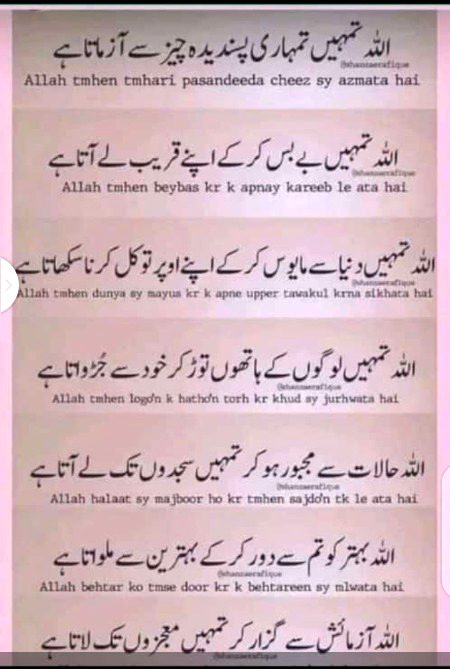 اللہ تمہیں تمہاری پسندیدہ چیز سے آزماتا ہے
@shanzaerafique
Allah tmhen tmhari pasandeeda cheez sy azmata hai
اللہ تمہیں بے بس کر کے اپنے قریب لے آتا ہے
@shanzaerafique
Allah tmhen beybas kr k apnay kareeb le ata hai
اللہ تمہیں دنیا سے مایوس کر کے اپنے اوپر توکل کرنا سکھاتا ہے
@shanzaerafique
Allah tmhen dunya sy mayus kr k apne upper tawakul krna sikhata hai
اللہ تمہیں لوگوں کے ہاتھوں توڑ کر خود سے جُڑواتا ہے
@shanzaerafique
Allah tmhen logo'n k hatho'n torh kr khud sy jurhwata hai
اللہ حالات سے مجبور ہو کر تمہیں سجدوں تک لے آتا ہے
@shanzaerafique
Allah halaat sy majboor ho kr tmhen sajdo'n tk le ata hai
اللہ بہتر کو تم سے دور کر کے بہترین سے ملواتا ہے
@shanzaerafique
Allah behtar ko tmse door kr k behtareen sy mlwata hai
اللہ آزمائش سے گزار کر تمہیں معجزوں تک لاتا ہے
@shanzaerafique